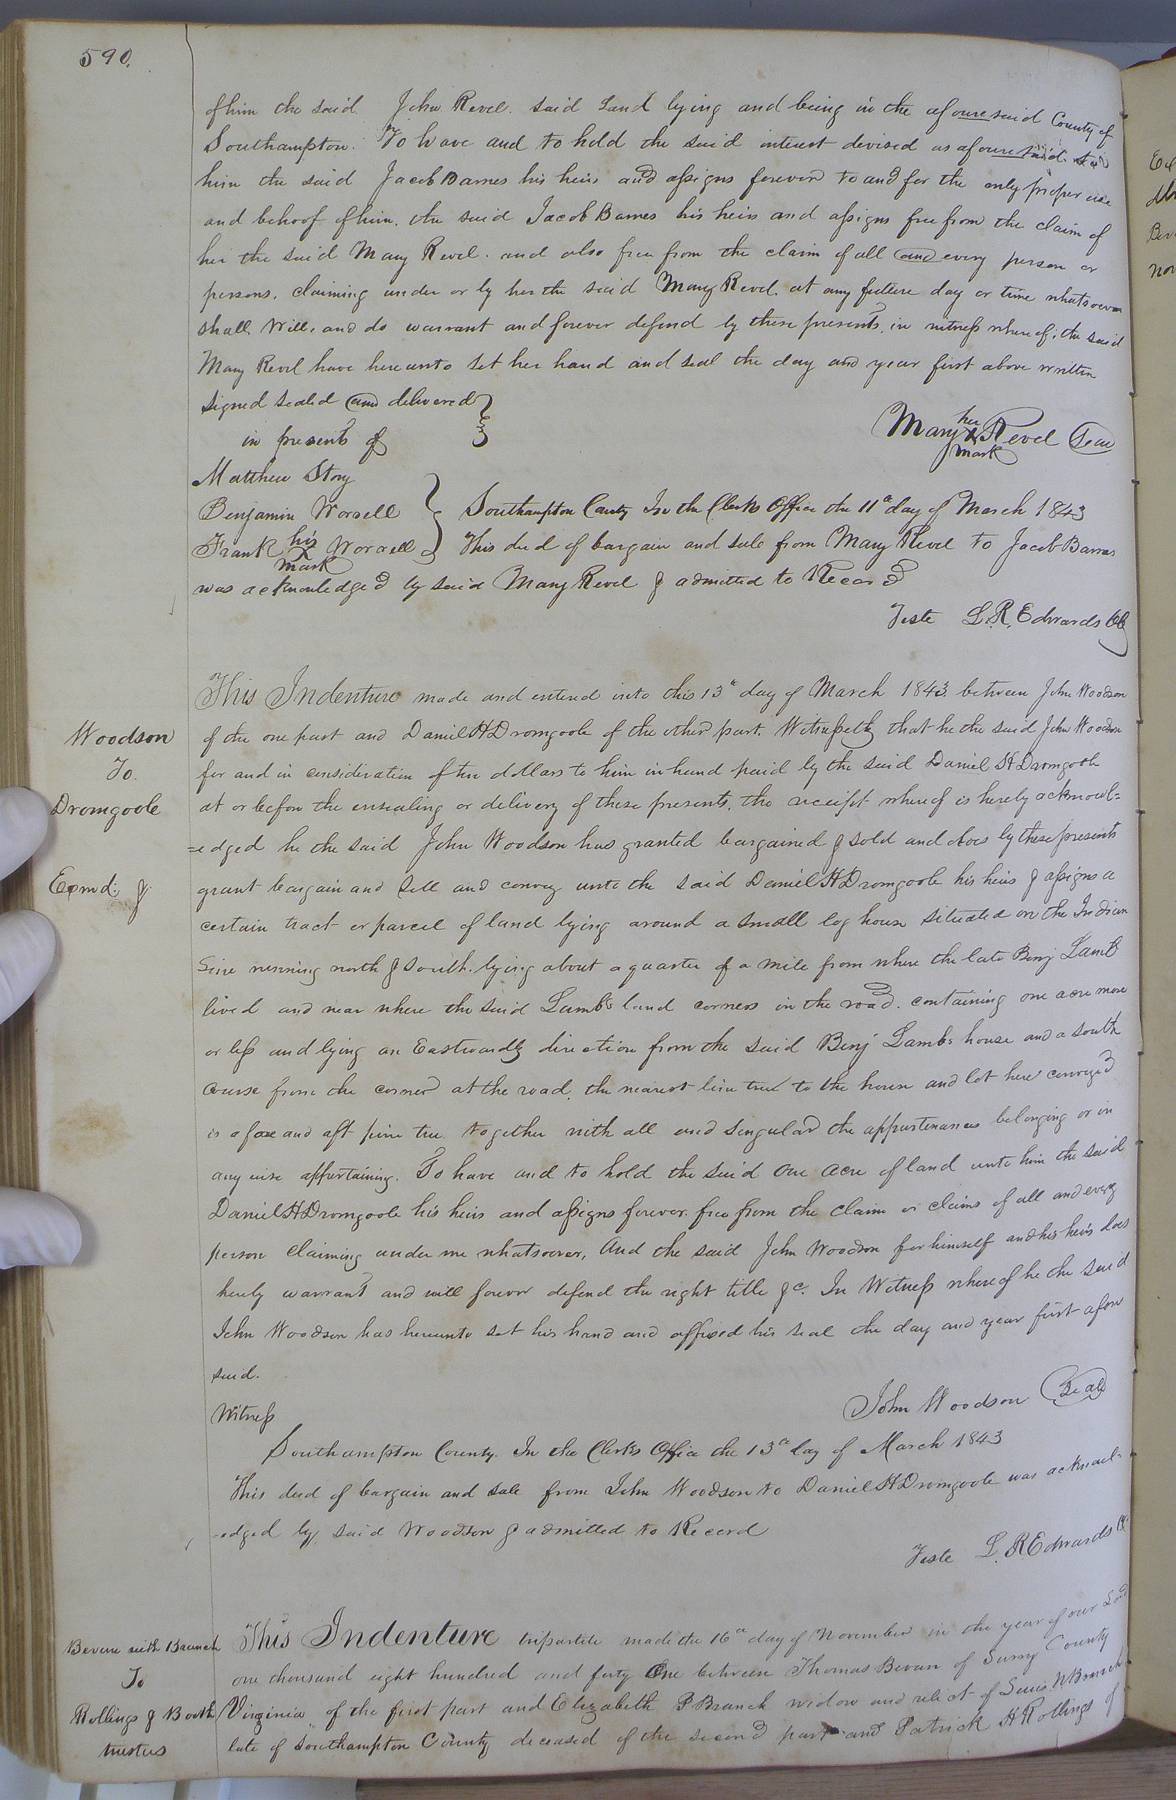 590.
of him the said John Revel. said Land lying and being in the afouresaid County of
Southampton. To have and to hold the said interest devised as afouresaid. to
him the said Jacob Barnes his heirs and assigns forever to and for the only proper use
and behoof of him. the said Jacob Barnes his heirs and assigns free from the claim of
her the said Mary Revel. and also free from the claim of all and every person or
persons. claiming under or by her the said Mary Revel. at any future day or time whatsoever
shall. Will. and do warrant and forever defend by these presents, in witness whereof, the said
Mary Revel have hereunto set her hand and seal the day and year first above written
signed sealed and delivered
in presents of
Mary her X mark Revel Seal
Matthew Story
Benjamin Worrell
Southampton County In the Clerks Office the 11th day of March 1843
Frank his X mark Worrell
This deed of bargain and sale from Mary Revel to Jacob Barnes
was acknowledged by said Mary Revel & admitted to Record
Teste L. R. Edwards Clk
Woodson
To.
Dromgoole
Exmd: &
This Indenture made and entered into this 13th day of March 1843. between John Woodson
of the one part and Daniel H Dromgoole of the other part. Witnesseth that he the said John Woodson
for and in consideration of two dollars to him in hand paid by the said Daniel H Dromgoole
at or before the ensealing or delivery of these presents, the receipt whereof is hereby acknowl=
=edged he the said John Woodson has granted bargained & sold and does by these presents
grant bargain and sell and convey unto the said Daniel H Dromgoole his heirs & assigns a
certain tract or parcel of land lying around a small log house situated on the Indian
Line running north & south. lying about a quarter of a mile from where the late Benj Lamb
lived and near where the said Lambs land corners in the road. containing one acre more
or less and lying an Eastwardly direction from the said Benj Lambs house and a south
course from the corner at the road, the nearest line tree to the house and lot here conveyed
is a fore and aft pine tree together with all and singular the appurtenances belonging or in
any wise appertaining. To have and to hold the said one acre of land unto him the said
Daniel H Dromgoole his heirs and assigns forever free from the claim or claims of all and every
person claiming under me whatsoever, And the said John Woodson for himself and his heirs does
hereby warrant and will forever defend the right title &c. In Witness whereof he the said
John Woodson has hereunto set his hand and affixed his seal the day and year first afore
said.
John Woodson Seal
Witness
Southampton County. In the Clerks Office the 13th day of March 1843
This deed of bargain and sale from John Woodson to Daniel H Dromgoole was acknowl-
-edged by said Woodson & admitted to Record
Teste L. R Edwards Clk
Bevan with Branch
To
Rollings & Booth
trustees
This Indenture tripartite made the 16th day of November in the year of our Lord
one thousand eight hundred and forty One between Thomas Bevan of Surry County
Virginia of the first part and Elizabeth P Branch widow and relict of Lewis N Branch
late of Southampton County deceased of the second part and Patrick H Rollings of